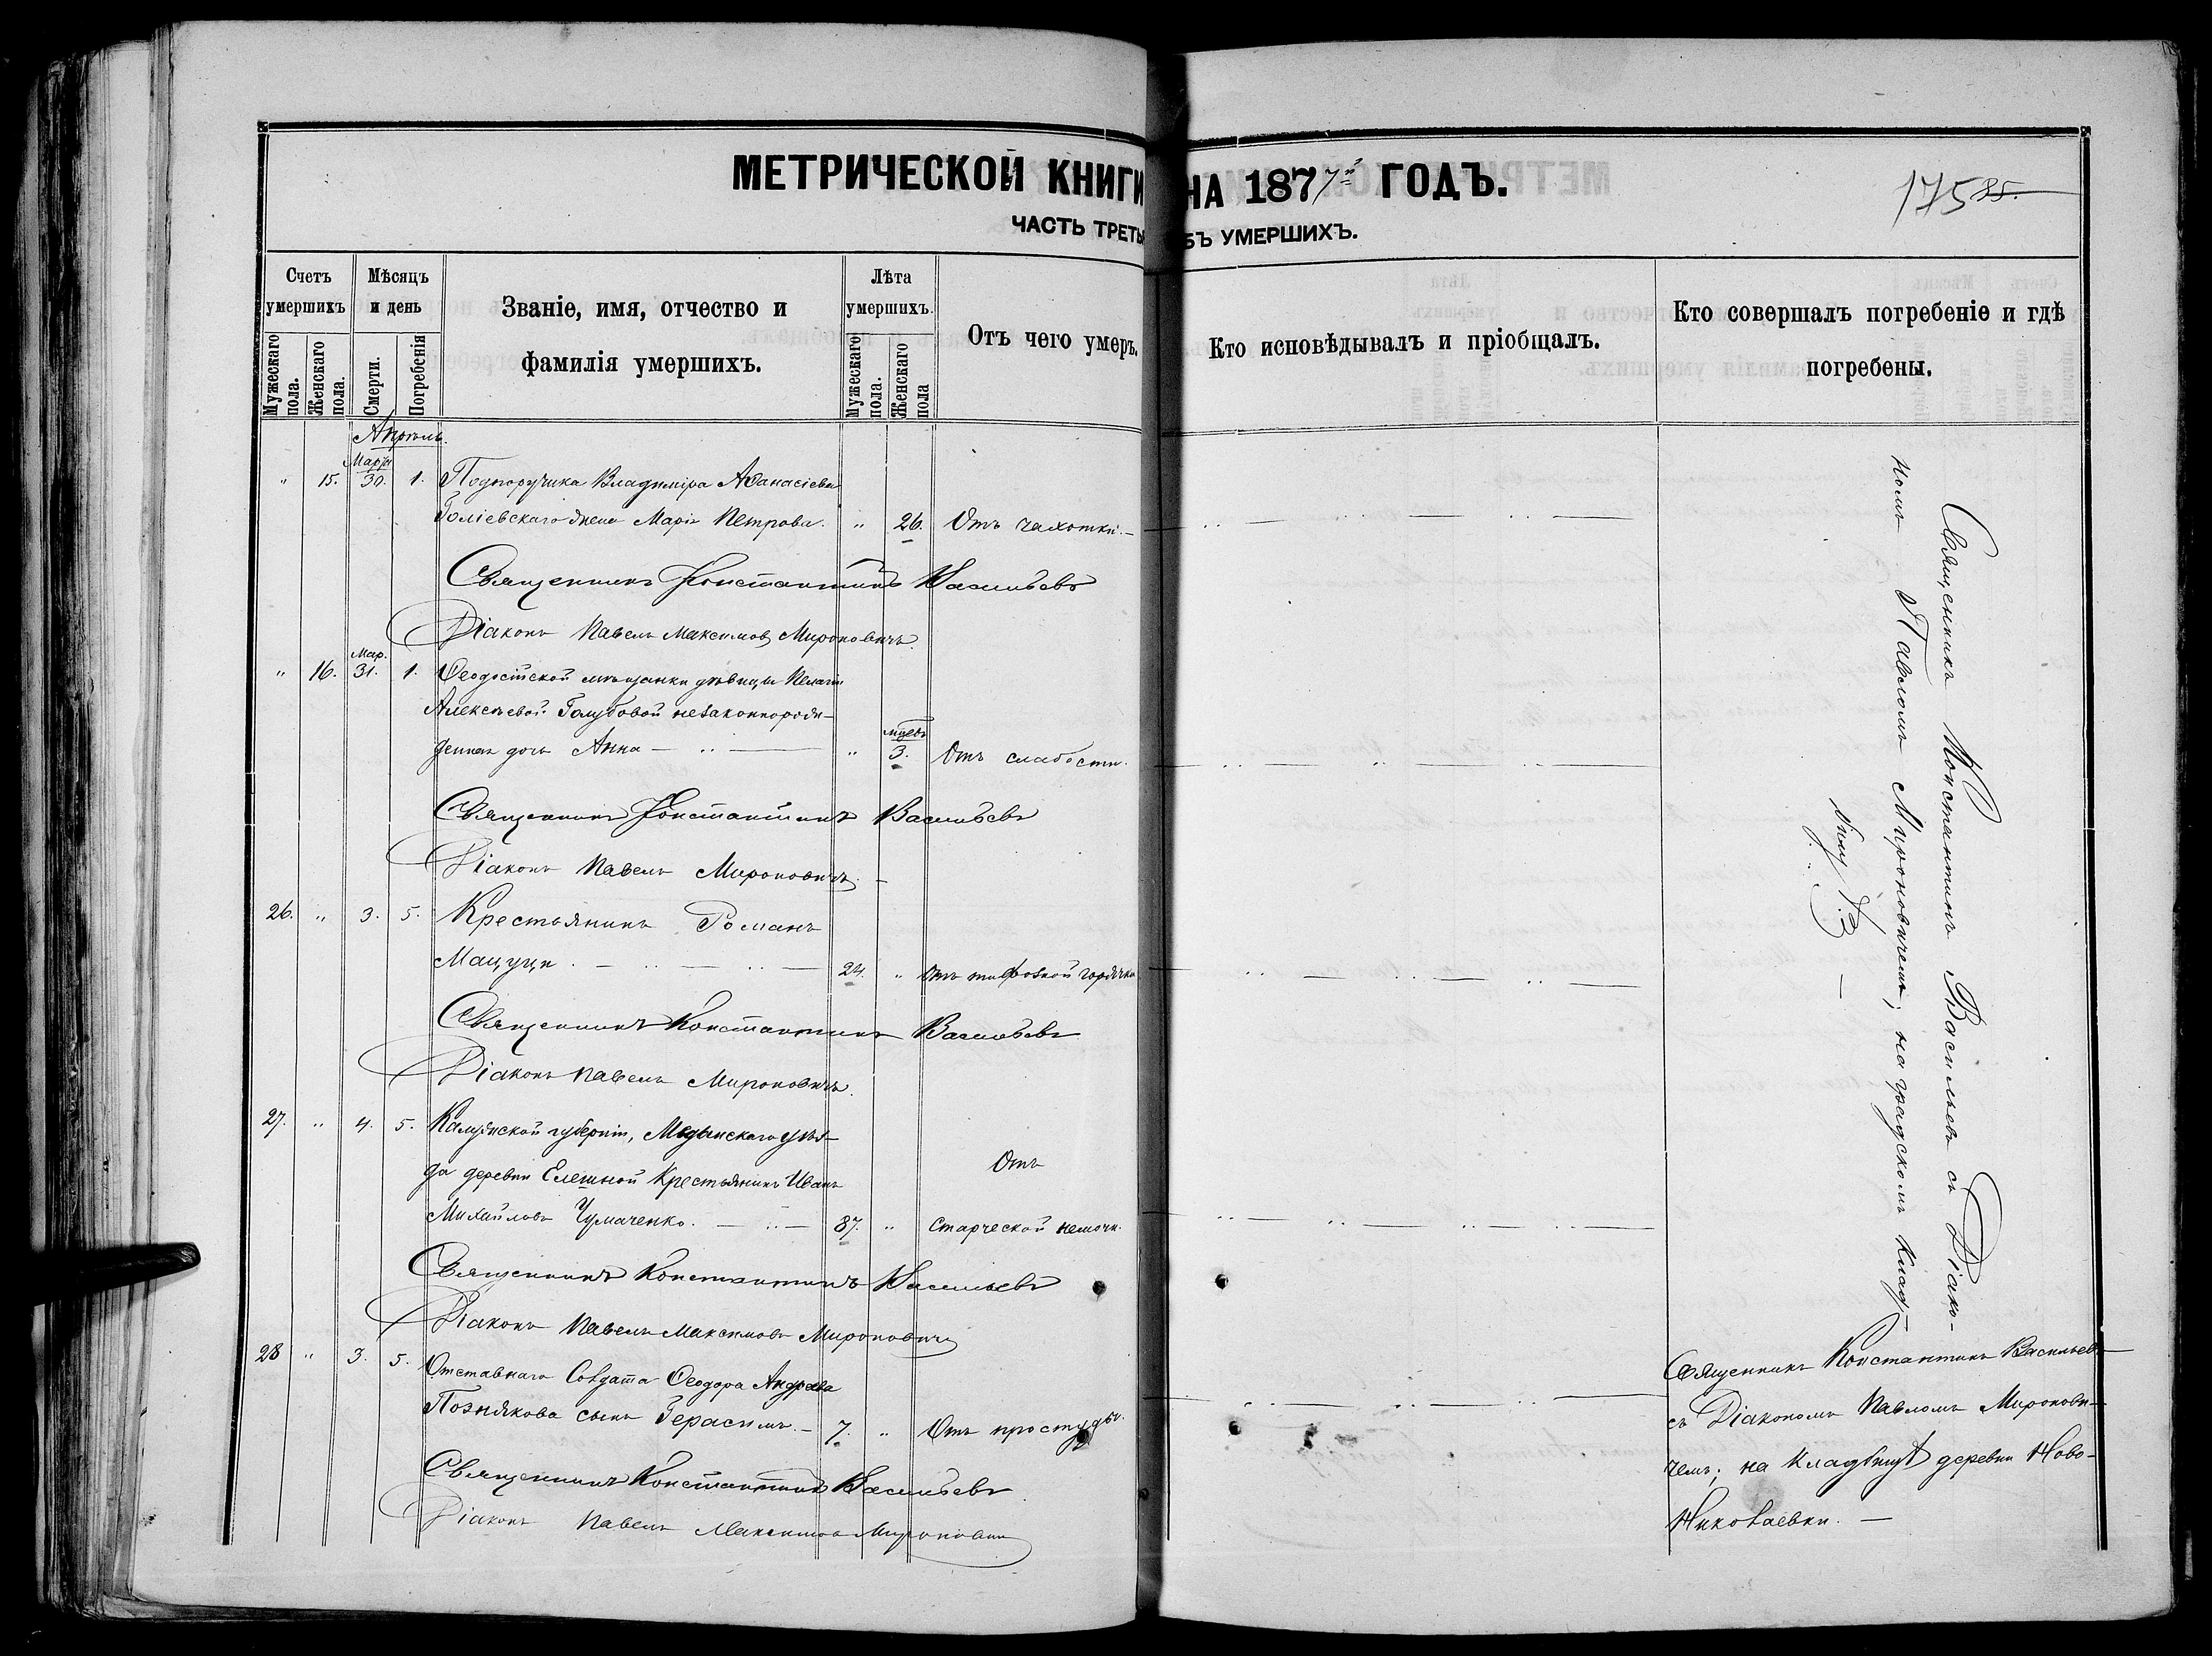 МЕТРИЧЕСКОЙ КНИГИ НА 1877й ГОДЪ.
175 85.
ЧАСТЬ ТРЕТЬ БЪ УМЕРШИХЪ.
Счетъ умершихъ
Мужескаго пола.
Женскаго пола.
Мѣсяцъ и день
Смерти.
Погребенія
Званіе, имя, отчество и
фамилія умершихъ.
Лѣта умершихъ.
Мужескаго пола.
Женскаго пола
Отъ чего умеръ.
Кто исповѣдывалъ и пріобщалъ.
Кто совершалъ погребеніе и гдѣ
погребены.
Апрѣль.
Марта
" 15. 30. 1. Подпоручика Владиміра Аѳанасіева
жена Марія Петрова. " 26. Отъ чахотки.
Священникъ Константинъ Васильевъ
Діаконъ Павелъ Максимовъ Мироновичъ.
Мар.
" 16. 31. 1. Ѳеодосійской мѣщанки дѣвицы Пелагіи
Алексѣевой Голубовой незаконнорож-
денная дочь Анна " 3. Отъ слабости.
Священникъ Константинъ Васильевъ
Діаконъ Павелъ Мироновичъ.
26. " 3. 5. Крестьянинъ Романъ
Мацуци 24. " Отъ тифозной горячки
Священникъ Константинъ Васильевъ
Діаконъ Павелъ Мироновичъ.
27. " 4. 5. Калужской губерніи, Медынскаго уѣз-
да деревни Елешной Крестьянинъ Иванъ
Михайловъ Чумаченко. 87. " Отъ
старческой немочи.
Священникъ Константинъ Васильевъ
Діаконъ Павелъ Максимовъ Мироновичъ
28 " 3. 5. Отставнаго Солдата Ѳеодора Андреева
Познякова сынъ Герасимъ. 7. " Отъ простуды.
Священникъ Константинъ Васильевъ
Діаконъ Павелъ Максимовъ Мироновичъ
Священникъ Константинъ Васильевъ съ Діако-
номъ Павломъ Мироновичемъ, на градскомъ клад-
бищѣ
Священникъ Константинъ Васильевъ
съ Діакономъ Павломъ Миронови-
чемъ; на кладбищѣ деревни Ново-
Николаевки.